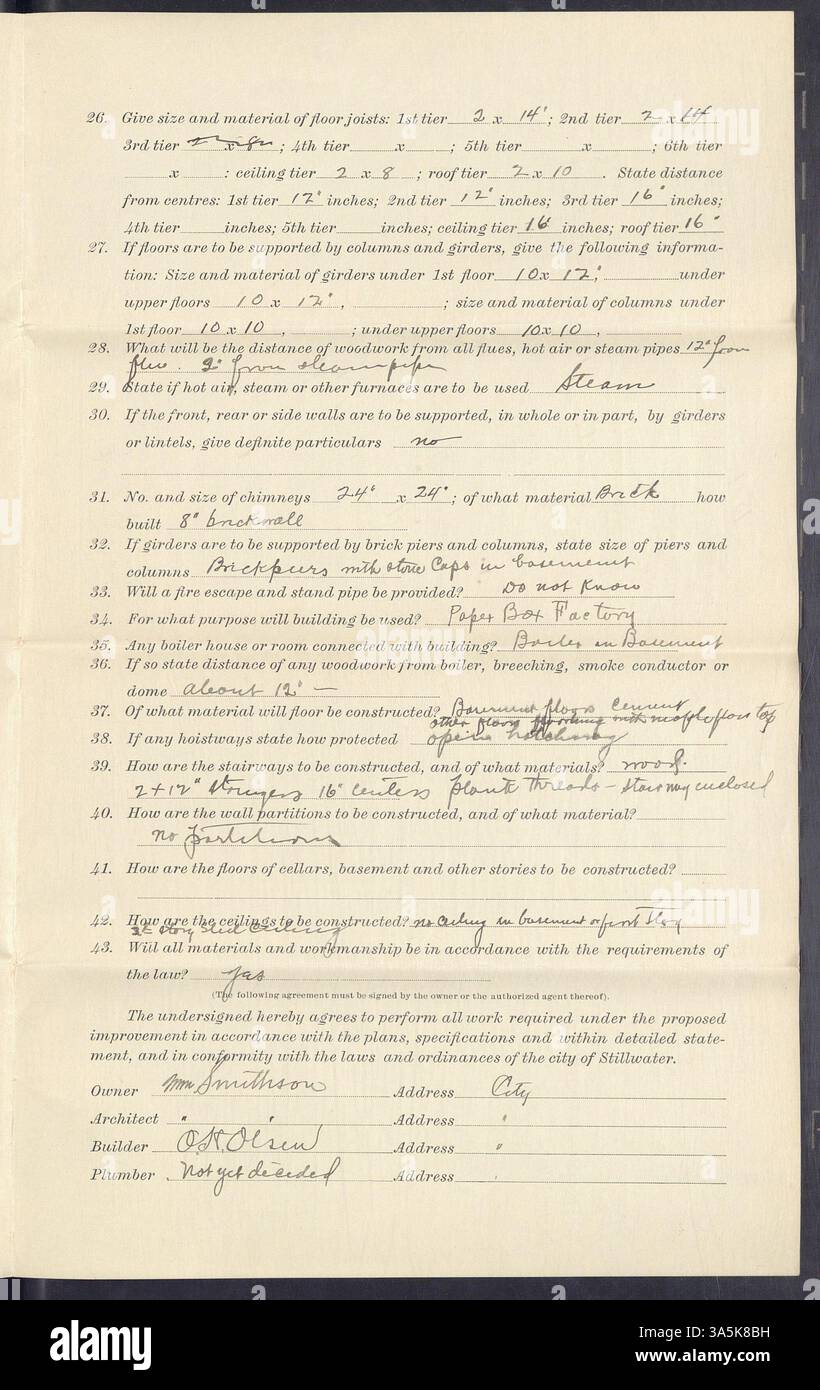 26. Give size and material of floor joists: 1st tier 2 x 14"; 2nd tier 2 x 14
3rd tier 2 x 8; 4th tier x ; 5th tier x ; 6th tier
x : ceiling tier 2 x 8 ; roof tier 2 x 10 . State distance
from centres: 1st tier 12" inches; 2nd tier 12" inches; 3rd tier 16" inches;
4th tier inches; 5th tier inches; ceiling tier 16 inches; roof tier 16"
27. If floors are to be supported by columns and girders, give the following informa-
tion: Size and material of girders under 1st floor 10 x 12", under
upper floors 10 x 12", ; size and material of columns under
1st floor 10 x 10 , ; under upper floors 10 x 10 ,
28. What will be the distance of woodwork from all flues, hot air or steam pipes 12" from
flue. 2" from steam pipe
29. State if hot air, steam or other furnaces are to be used Steam
30. If the front, rear or side walls are to be supported, in whole or in part, by girders
or lintels, give definite particulars no
31. No. and size of chimneys 24" x 24"; of what material Brick how
built 8" brick wall
32. If girders are to be supported by brick piers and columns, state size of piers and
columns Brick piers with stone Caps in basement
33. Will a fire escape and stand pipe be provided? Do not Know
34. For what purpose will building be used? Paper Box Factory
35. Any boiler house or room connected with building? Boiler in Basement
36. If so state distance of any woodwork from boiler, breeching, smoke conductor or
dome about 12" —
37. Of what material will floor be constructed? Basement floors cement
other floors with maple floor top
38. If any hoistways state how protected open
39. How are the stairways to be constructed, and of what materials? wood.
2 + 12" Stringers 16" centers plank threads - stairway enclosed
40. How are the wall partitions to be constructed, and of what material?
no partitions
41. How are the floors of cellars, basement and other stories to be constructed?
42. How are the ceilings to be constructed? no Ceiling in basement or first story
2d story Steel Ceiling
43. Will all materials and workmanship be in accordance with the requirements of
the law? yes
(The following agreement must be signed by the owner or the authorized agent thereof).
The undersigned hereby agrees to perform all work required under the proposed
improvement in accordance with the plans, specifications and within detailed state-
ment, and in conformity with the laws and ordinances of the city of Stillwater.
Owner Wm Smithson Address City
Architect " " Address "
Builder O.H. Olsen Address "
Plumber Not yet decided Address
alamy
Image ID: 3A5K8BH
www.alamy.com